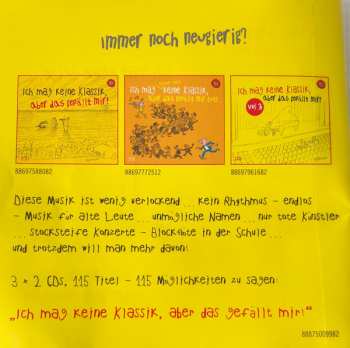 Immer noch neugierig?
Ich mag keine Klassik,
aber das gefällt mir!
Ich mag keine Klassik,
aber das gefällt mir
Ich mag keine Klassik,
aber das gefällt mir!
vol 3
88697588082
88697772512
88697961682
Diese Musik ist wenig verlockend ... kein Rhythmus - endlos
- Musik für alte Leute ... unmögliche Namen ... nur tote Künstler
... stocksteife Konzerte - Blockflöte in der Schule ...
und trotzdem will man mehr davon!
3 x 2 CDs, 115 Titel - 115 Möglichkeiten zu sagen:
„Ich mag keine Klassik, aber das gefällt mir!“
88875009982